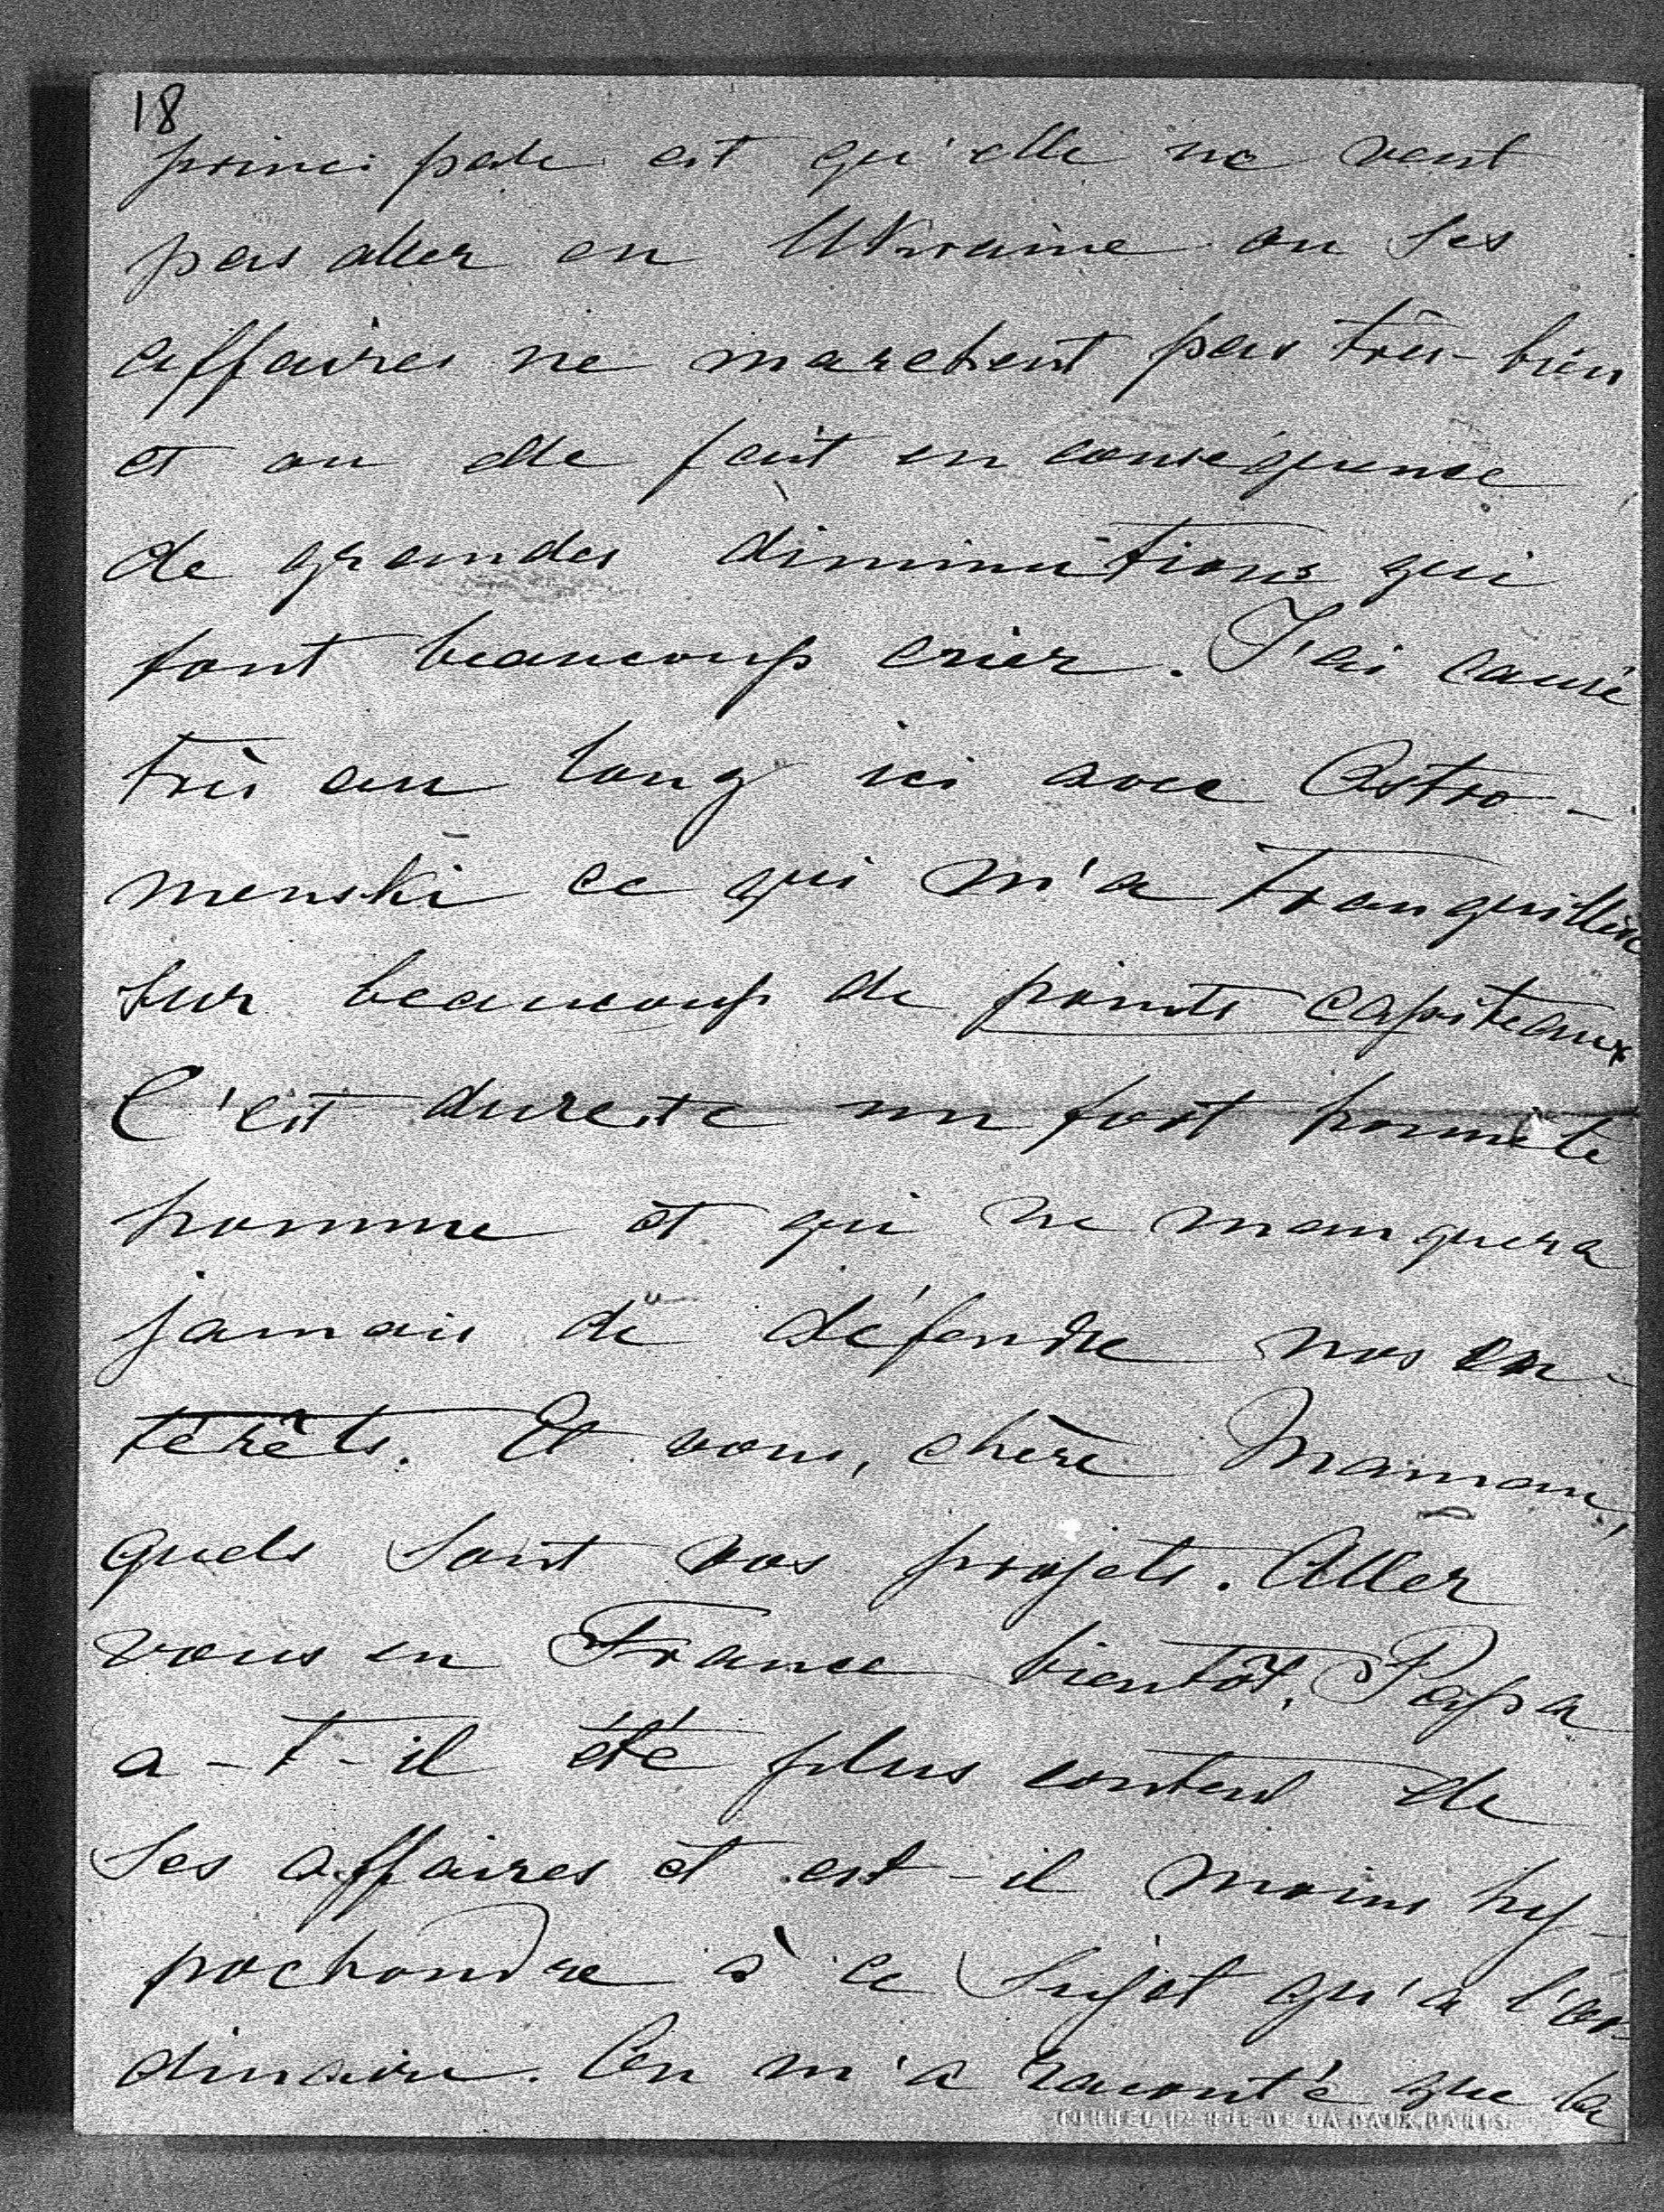 18
principale est qu'elle ne veut
pas aller en Ukraine ou ses
affaires ne marchent pas très-bien
et ou elle fait en conséquence
de grandes diminutions qui
font beaucoup crier. J'ai causé
très au long ici avec Ostro-
menski ce qui m'a tranquillisé
sur beaucoup de points capiteaux
C'est dureste un fort honnête
homme et qui ne manquera
jamais de défendre nos en-
térêts. Et vous, chère Maman,
quels sont vos projets. Aller
vous en France bientôt, Papa
a-t-il été plus content de
ses affaires et est-il moins hy-
pochondre à ce sujet qu'à l'or-
dinaire. On m'a raconté que la
RUE DE LA PAIX. PARIS.